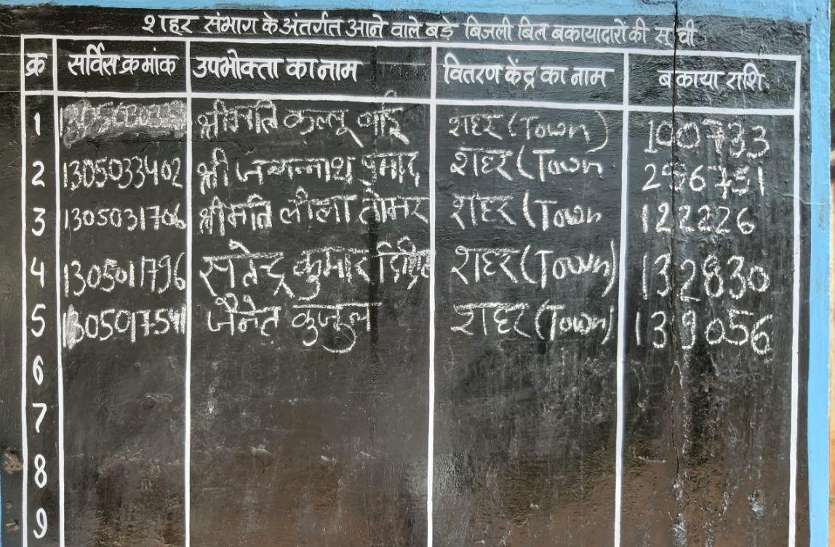 शहर संभाग के अंतर्गत आने वाले बड़े बिजली बिल बकायादारों की सूची
क्र सर्विस क्रमांक उपभोक्ता का नाम वितरण केंद्र का नाम बकाया राशि
1 श्रीमति कल्लू बाई शहर (Town) 100733
2 1305033402 श्री जगन्नाथ प्रसाद शहर (Town 296751
3 1305031706 श्रीमति लीला तोमर शहर (Town 122226
4 1305011796 सतेन्द्र कुमार शहर (Town) 132830
5 1305017541 जैनेत कुजुल शहर (Town) 139056
6
7
8
9